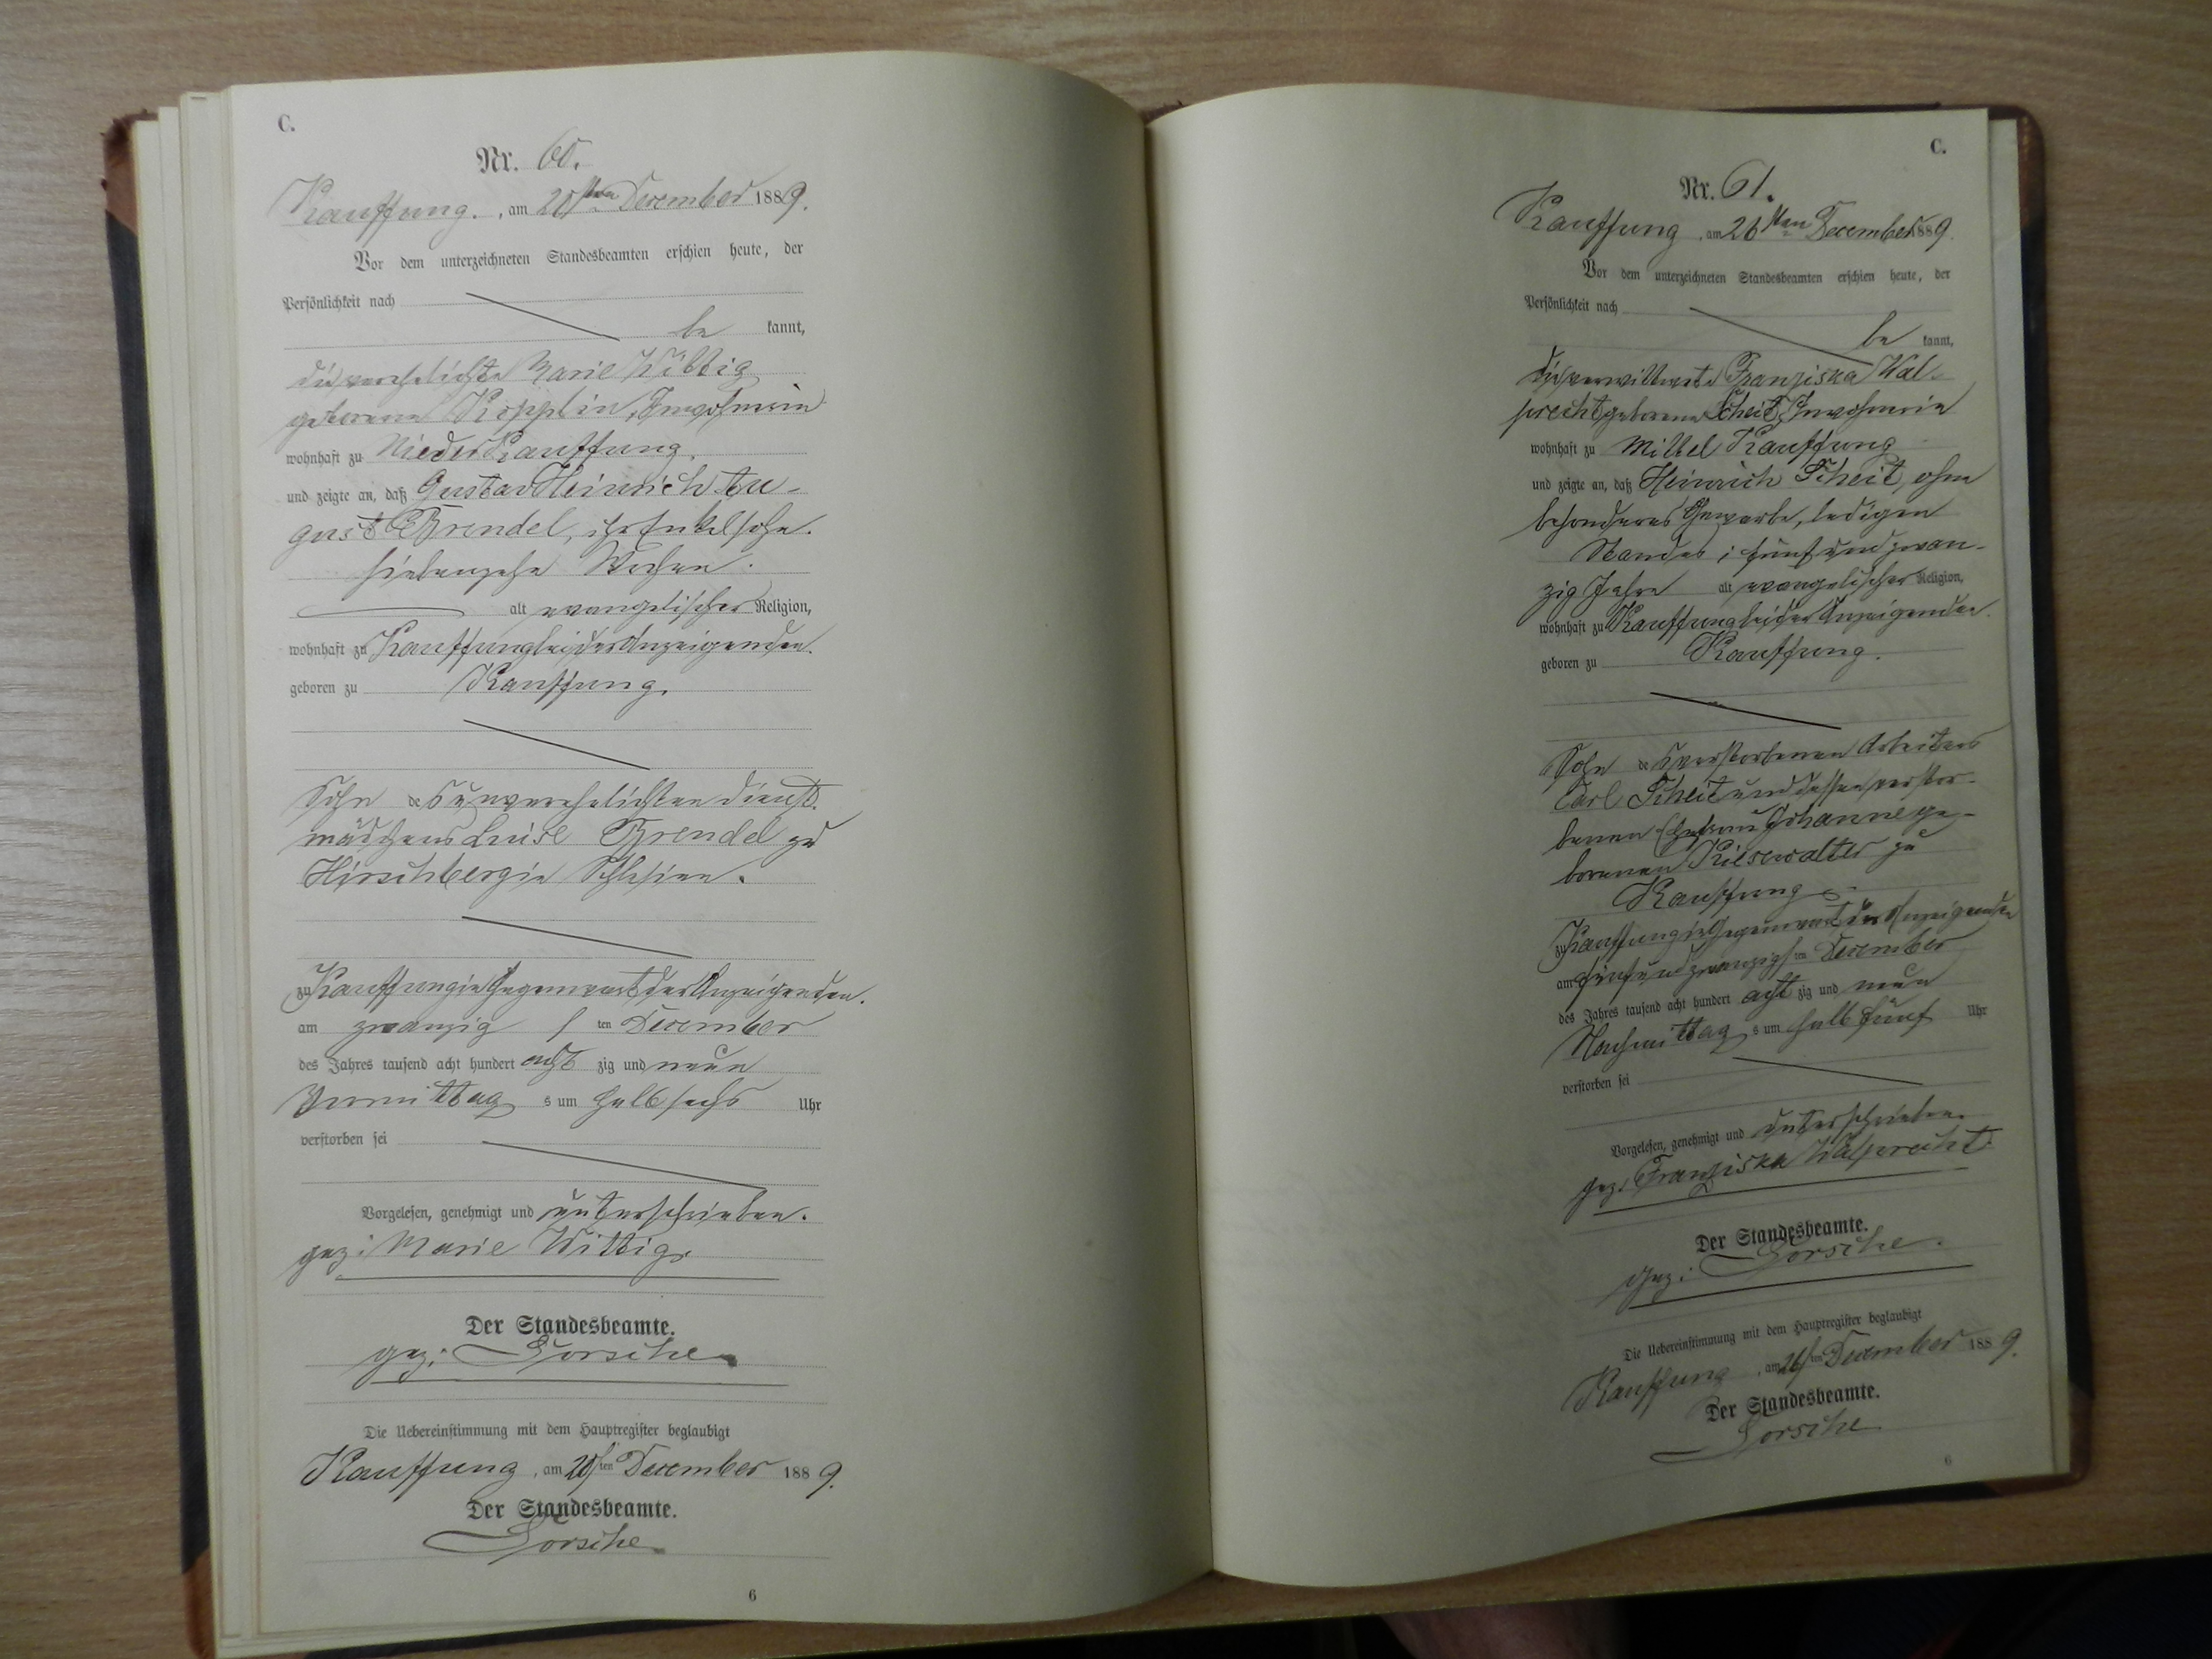 C.
Nr. 60.
Kauffung., am 20sten December 1889.
Vor dem unterzeichneten Standesbeamten erschien heute, der
Persönlichkeit nach
be kannt,
die verehelichte Marie Wittig
geborene Kopplin, Inwohnerin
wohnhaft zu Nieder Kauffung,
und zeigte an, daß Gustav Heinrich Au-
gust Brendel, ihr Enkelsohn.
siebenzehn Wochen.
alt evangelischer Religion,
wohnhaft zu Kauffung bei der Anzeigenden.
geboren zu Kauffung.
Sohn des unverehelichten Dienst-
mädchens Luise Brendel zu
Hirschberg in Schlesien.
zu Kauffung in Gegenwart der Anzeigenden.
am zwanzig sten December
des Jahres tausend acht hundert acht zig und neun
Vormittag s um halb sechs Uhr
verstorben sei
Vorgelesen, genehmigt und unterschrieben.
gez: Marie Wittig.
Der Standesbeamte.
gez:
Die Uebereinstimmung mit dem Hauptregister beglaubigt
Kauffung, am 20sten December 1889.
Der Standesbeamte.
6
C.
Nr. 61.
Kauffung, am 26sten December 1889.
Vor dem unterzeichneten Standesbeamten erschien heute, der
Persönlichkeit nach
be kannt,
die verwittwete Franziska Wal-
precht geborene Scheit, Inwohnerin
wohnhaft zu Mittel Kauffung
und zeigte an, daß Heinrich Scheit, ohne
besonderes Gewerbe, ledigen
Standes; fünf und zwan-
zig Jahre alt evangelischer Religion,
wohnhaft zu Kauffung bei der Anzeigenden.
geboren zu Kauffung.
Sohn des verstorbenen Arbeiters
Carl Scheit und dessen verstor-
benen Ehefrau Johanne ge-
borenen Kiesewalter zu
Kauffung
zu Kauffung in Gegenwart der Anzeigenden
am fünf und zwanzigsten December
des Jahres tausend acht hundert acht zig und neun
Nachmittag s um halb fünf Uhr
verstorben sei
Vorgelesen, genehmigt und unterschrieben.
gez: Franziska Walprecht
Der Standesbeamte.
gez:
Die Uebereinstimmung mit dem Hauptregister beglaubigt
Kauffung, am 26sten December 1889.
Der Standesbeamte.
6